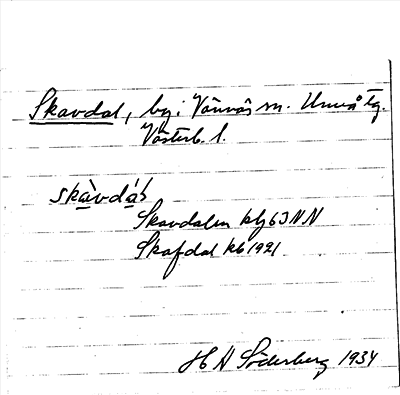 Skavdal, by i Vännäs sn. Umeå tg.
Västerb. l.
skàvdáɫ
Skavdalen klj63NN
Skafdal kb 1921.
H A Söderberg 1934